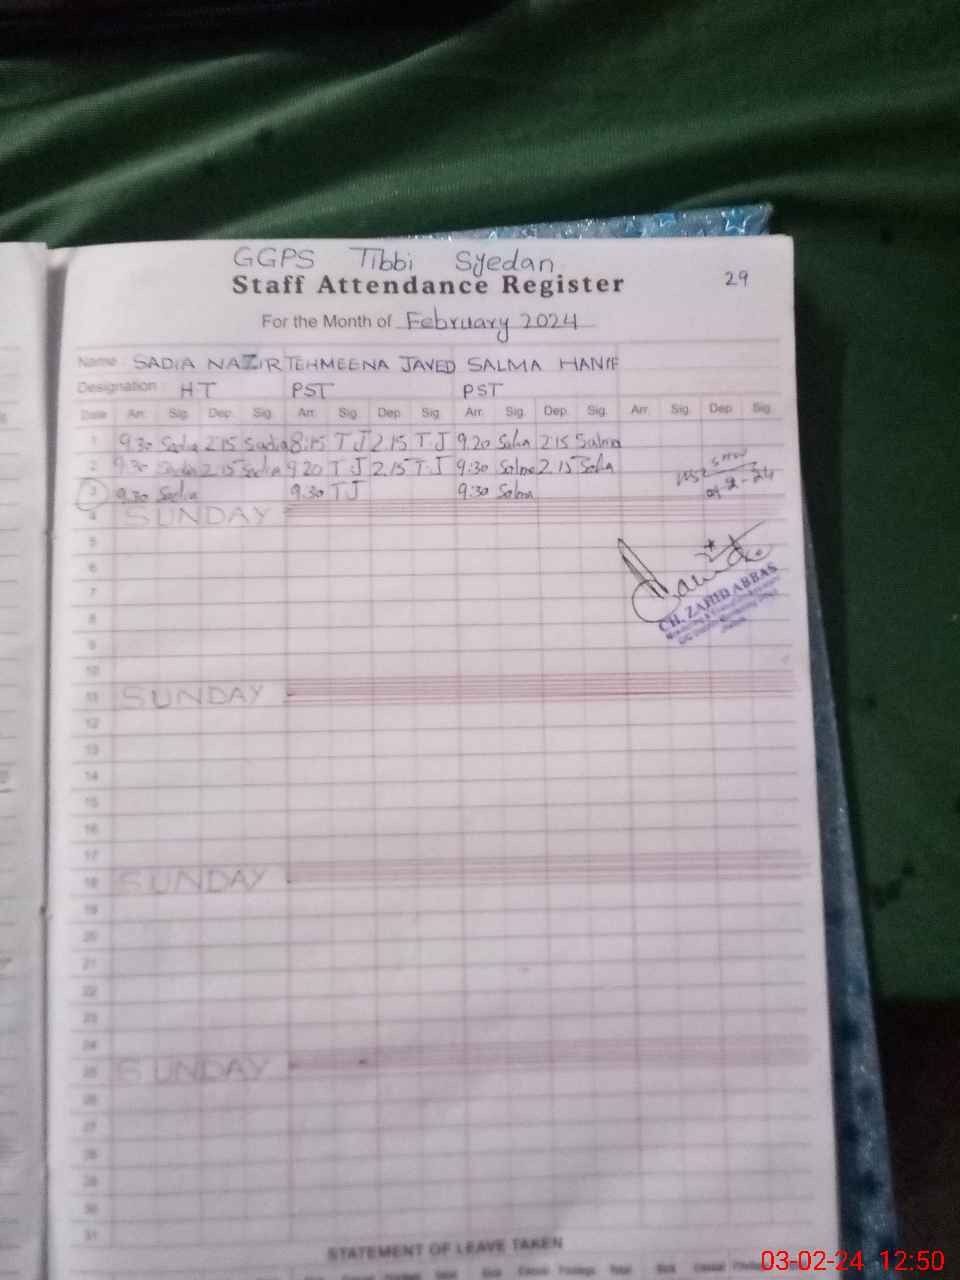 GGPS Tibbi Syedan
Staff Attendance Register
29
For the Month of February 2024
Name SADIA NAZIR TEHMEENA JAVED SALMA HANIF
Designation HT PST PST
Date Arr. Sig. Dep. Sig. Arr. Sig. Dep. Sig. Arr. Sig. Dep. Sig. Arr. Sig. Dep. Sig.
1 9.30 Sadia 2.15 Sadia 8:15 T.J 2.15 T.J 9.20 Salma 2:15 Salma
2 9.30 Sadia 2.15 Sadia 9.20 T.J 2.15 T.J 9:30 Salma 2.15 Salma
3 9.30 Sadia 9.30 TJ 9:30 Salma
4 SUNDAY
5
6
7
CH. ZAHID ABBAS
8
9
10
11 SUNDAY
12
13
14
15
16
17
18 SUNDAY
19
20
21
22
23
24
25 SUNDAY
26
27
28
29
30
31
STATEMENT OF LEAVE TAKEN
03-02-24 12:50